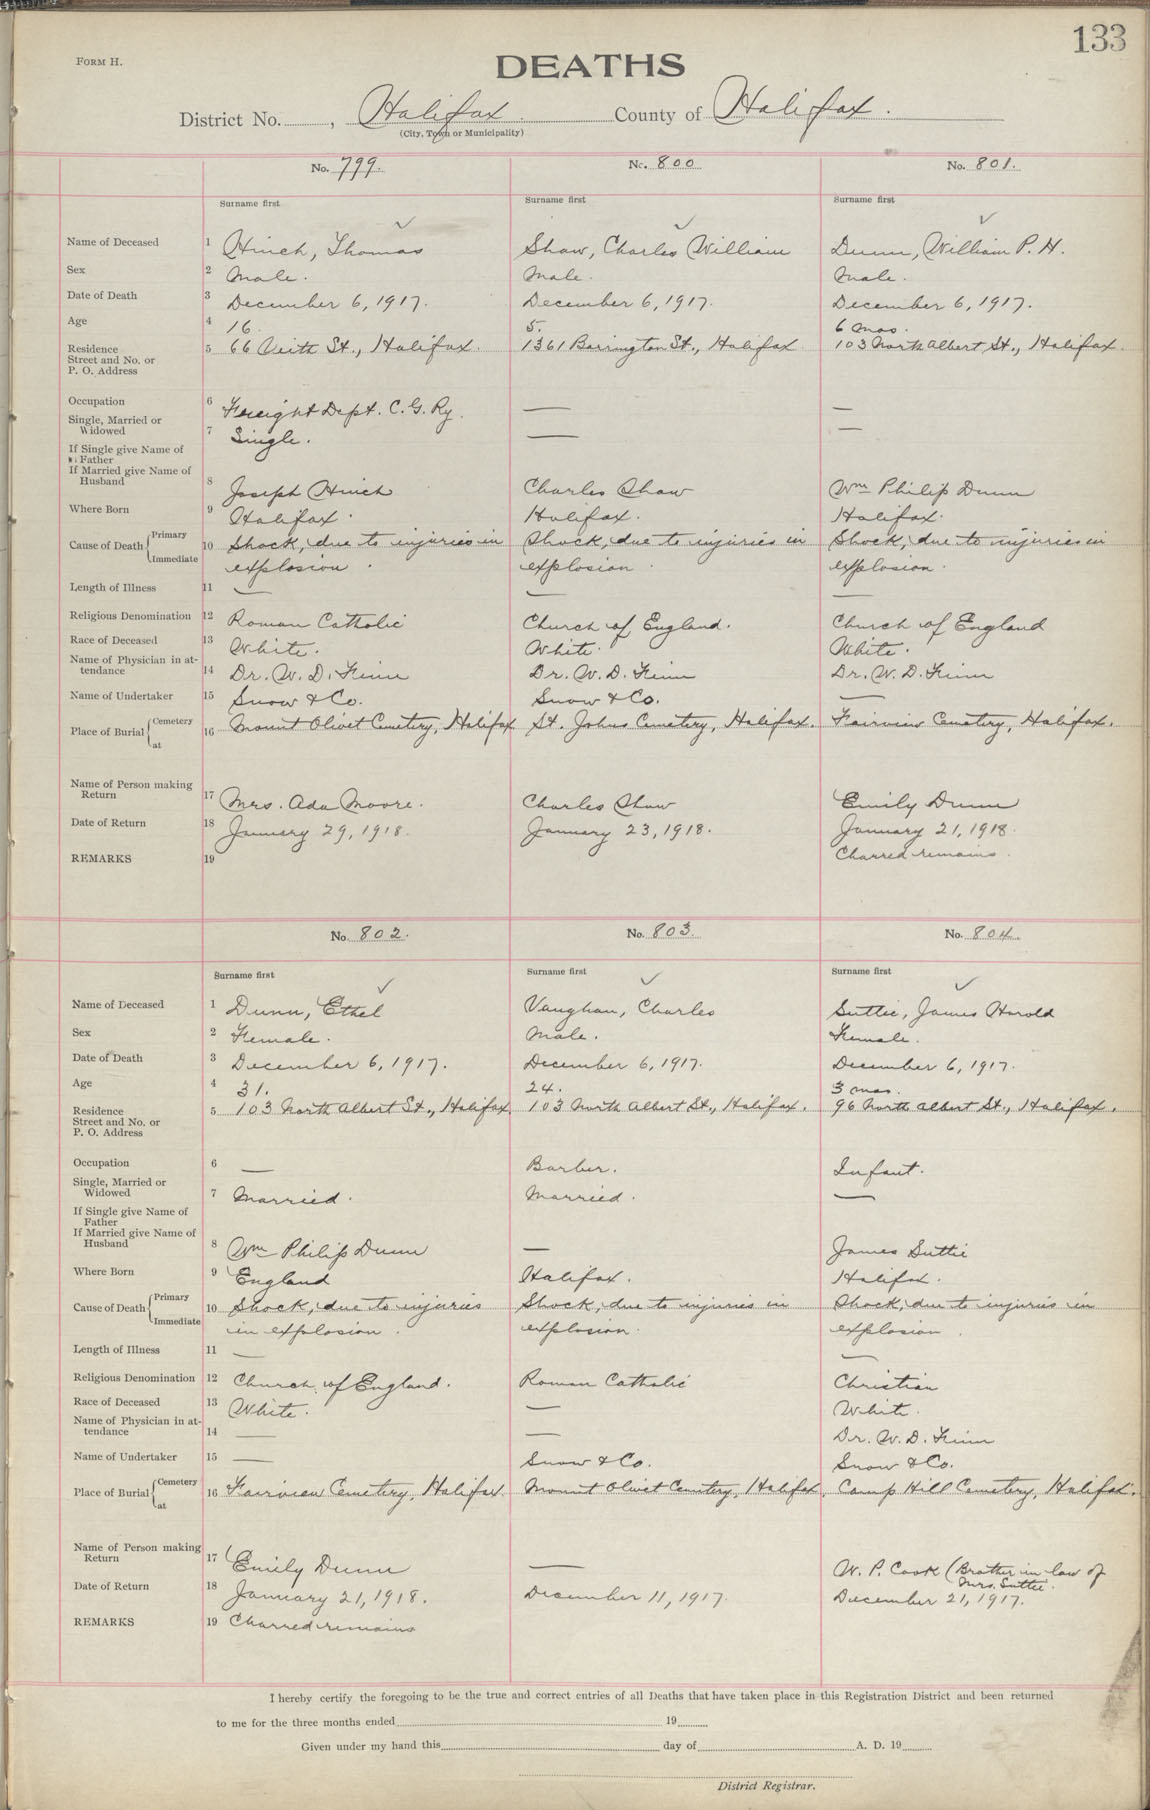 133
FORM H.
DEATHS
District No. , Halifax County of Halifax.
(City, Town or Municipality)
No. 799. No. 800 No. 801.
Surname first Surname first Surname first
Name of Deceased 1 Hinch, Thomas Shaw, Charles William Dunn, William P. H.
Sex 2 Male. Male. Male.
Date of Death 3 December 6, 1917. December 6, 1917. December 6, 1917.
Age 4 16. 5. 6 mos.
Residence 5 66 Veith St., Halifax. 1361 Barrington St., Halifax 103 North Albert St., Halifax.
Street and No. or
P. O. Address
Occupation 6 Freight Dept. C. G. Ry. — —
Single, Married or
Widowed 7 Single. — —
If Single give Name of
Father
If Married give Name of
Husband 8 Joseph Hinch Charles Shaw Wm Philip Dunn
Where Born 9 Halifax. Halifax. Halifax.
Cause of Death Primary Immediate 10 Shock, due to injuries in Shock, due to injuries in Shock, due to injuries in
explosion. explosion. explosion.
Length of Illness 11 — — —
Religious Denomination 12 Roman Catholic Church of England. Church of England
Race of Deceased 13 White. White. White.
Name of Physician in at-
tendance 14 Dr. W. D. Finn Dr. W. D. Finn Dr. W. D. Finn
Name of Undertaker 15 Snow & Co. Snow & Co. —
Place of Burial Cemetery at 16 Mount Olivet Cemetery, Halifax St. Johns Cemetery, Halifax. Fairview Cemetery, Halifax.
Name of Person making
Return 17 Mrs. Ada Moore. Charles Shaw Emily Dunn
Date of Return 18 January 29, 1918. January 23, 1918. January 21, 1918.
REMARKS 19 Charred remains.
No. 802. No. 803. No. 804.
Surname first Surname first Surname first
Name of Deceased 1 Dunn, Ethel Vaughan, Charles Suttie, James Harold
Sex 2 Female. Male. Female.
Date of Death 3 December 6, 1917. December 6, 1917. December 6, 1917.
Age 4 31. 24. 3 mos.
Residence 5 103 North Albert St., Halifax. 103 North Albert St., Halifax. 96 North Albert St., Halifax.
Street and No. or
P. O. Address
Occupation 6 — Barber. Infant.
Single, Married or
Widowed 7 Married. Married. —
If Single give Name of
Father
If Married give Name of
Husband 8 Wm Philip Dunn — James Suttie
Where Born 9 England Halifax. Halifax.
Cause of Death Primary Immediate 10 Shock, due to injuries Shock, due to injuries in Shock, due to injuries in
in explosion. explosion. explosion.
Length of Illness 11 — —
Religious Denomination 12 Church of England. Roman Catholic Christian
Race of Deceased 13 White. — White.
Name of Physician in at-
tendance 14 — — Dr. W. D. Finn
Name of Undertaker 15 — Snow & Co. Snow & Co.
Place of Burial Cemetery at 16 Fairview Cemetery, Halifax. Mount Olivet Cemetery, Halifax. Camp Hill Cemetery, Halifax.
Name of Person making
Return 17 Emily Dunn — W. P. Cook (Brother in law of
Mrs. Suttie.
Date of Return 18 January 21, 1918. December 11, 1917. December 21, 1917.
REMARKS 19 Charred remains
I hereby certify the foregoing to be the true and correct entries of all Deaths that have taken place in this Registration District and been returned
to me for the three months ended 19
Given under my hand this day of A. D. 19
District Registrar.